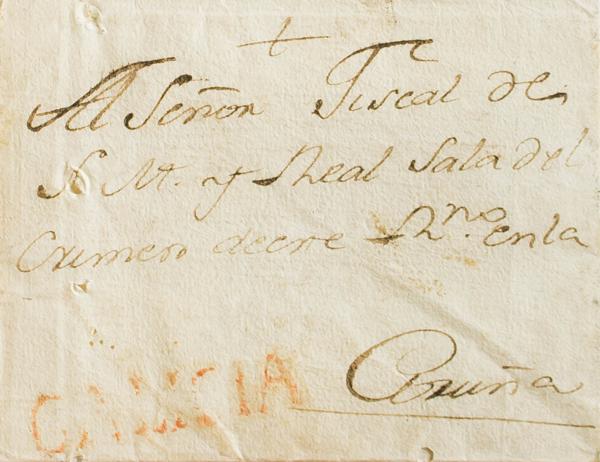 +
Al Señor Fiscal de
S. M. y Real Sala del
Crimen deere Rno. en la
Coruña
GALICIA